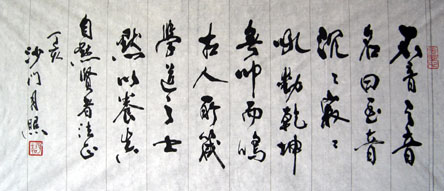 不音之音
名曰至音
沉沉寂寂
吼動乾坤
無叩而鳴
古人所箴
學道之士
默以養真
自默賢者法正
丁亥
沙門月照